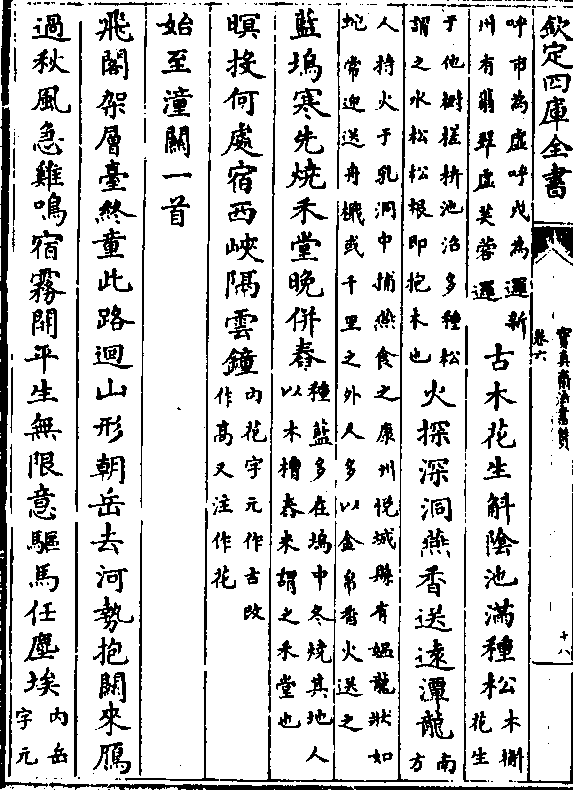 欽定四庫全書
寶真齋法書贊
卷六
十八
呼市為虛呼戌為邏新
州有翡翠虛芙蓉邏
古木花生斛陰池滿種松
木斛花生
于他樹槎枿池沼多種松
謂之水松松根即抱木也
火探深洞燕香送遠潭龍
南方
人持火于乳洞中捕燕食之康州悅城縣有媼龍狀如
蛇常迎送舟檝或千里之外人多以金帛香火送之
藍塢寒先燒禾堂晚併舂
種藍多在塢中冬燒其地人
以木槽舂米謂之禾堂也
暝投何處宿西峽隔雲鐘
內花字元作古改
作髙又注作花
始至潼關一首
飛閣架層臺終童此路迴山形朝岳去河勢抱關來鴈
過秋風急雞鳴宿霧開平生無限意驅馬任塵埃
內岳
字元